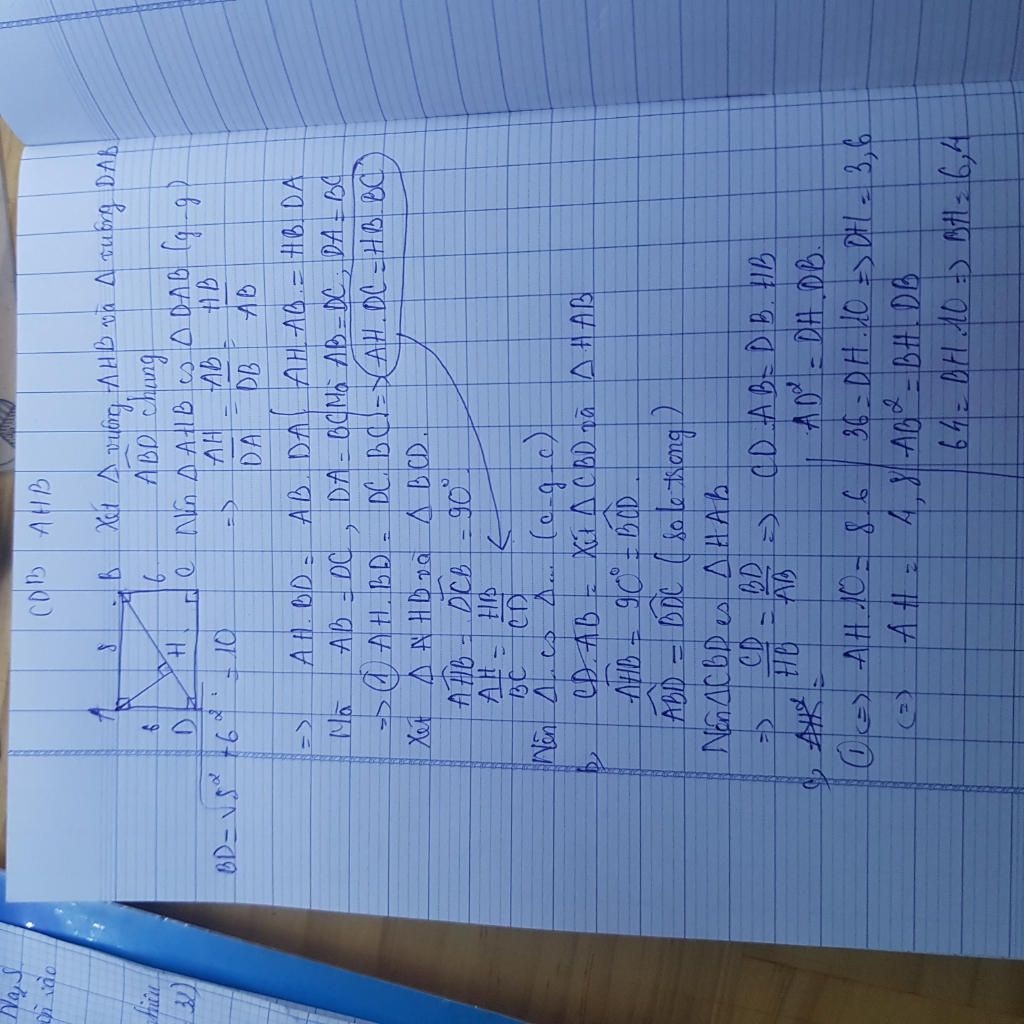 CDB AHB
A 8 B
6 H 6
D C
BD = √8² + 6² = 10
Xét Δ vuông AHB và Δ vuông DAB
ABD chung
Nên Δ AHB ∽ Δ DAB (g-g)
=> AH/DA = AB/DB = HB/AB
=> AH.BD = AB.DA
Mà AB = DC, DA = BC
=> ① AH.BD = DC.BC
AH.AB = HB.DA
Mà AB = DC, DA = BC
=> AH.DC = HB.BC
Xét Δ AHB và Δ BCD.
AHB = DCB = 90°
AH/BC = HB/CD
Nên Δ ∽ Δ... (c-g-c)
b, CD.AB = Xét Δ CBD và Δ HAB
AHB = 90° = BCD.
ABD = BDC (so le trong)
Nên Δ CBD ∽ Δ HAB
=> CD/HB = BD/AB => CD.AB = DB.HB
c, AH² =
① (=> AH.10 = 8.6
(=> AH = 4,8
AD² = DH.DB.
36 = DH.10 => DH = 3,6
AB² = BH.DB
64 = BH.10 => BH = 6,4
Na₂S
vào
32)